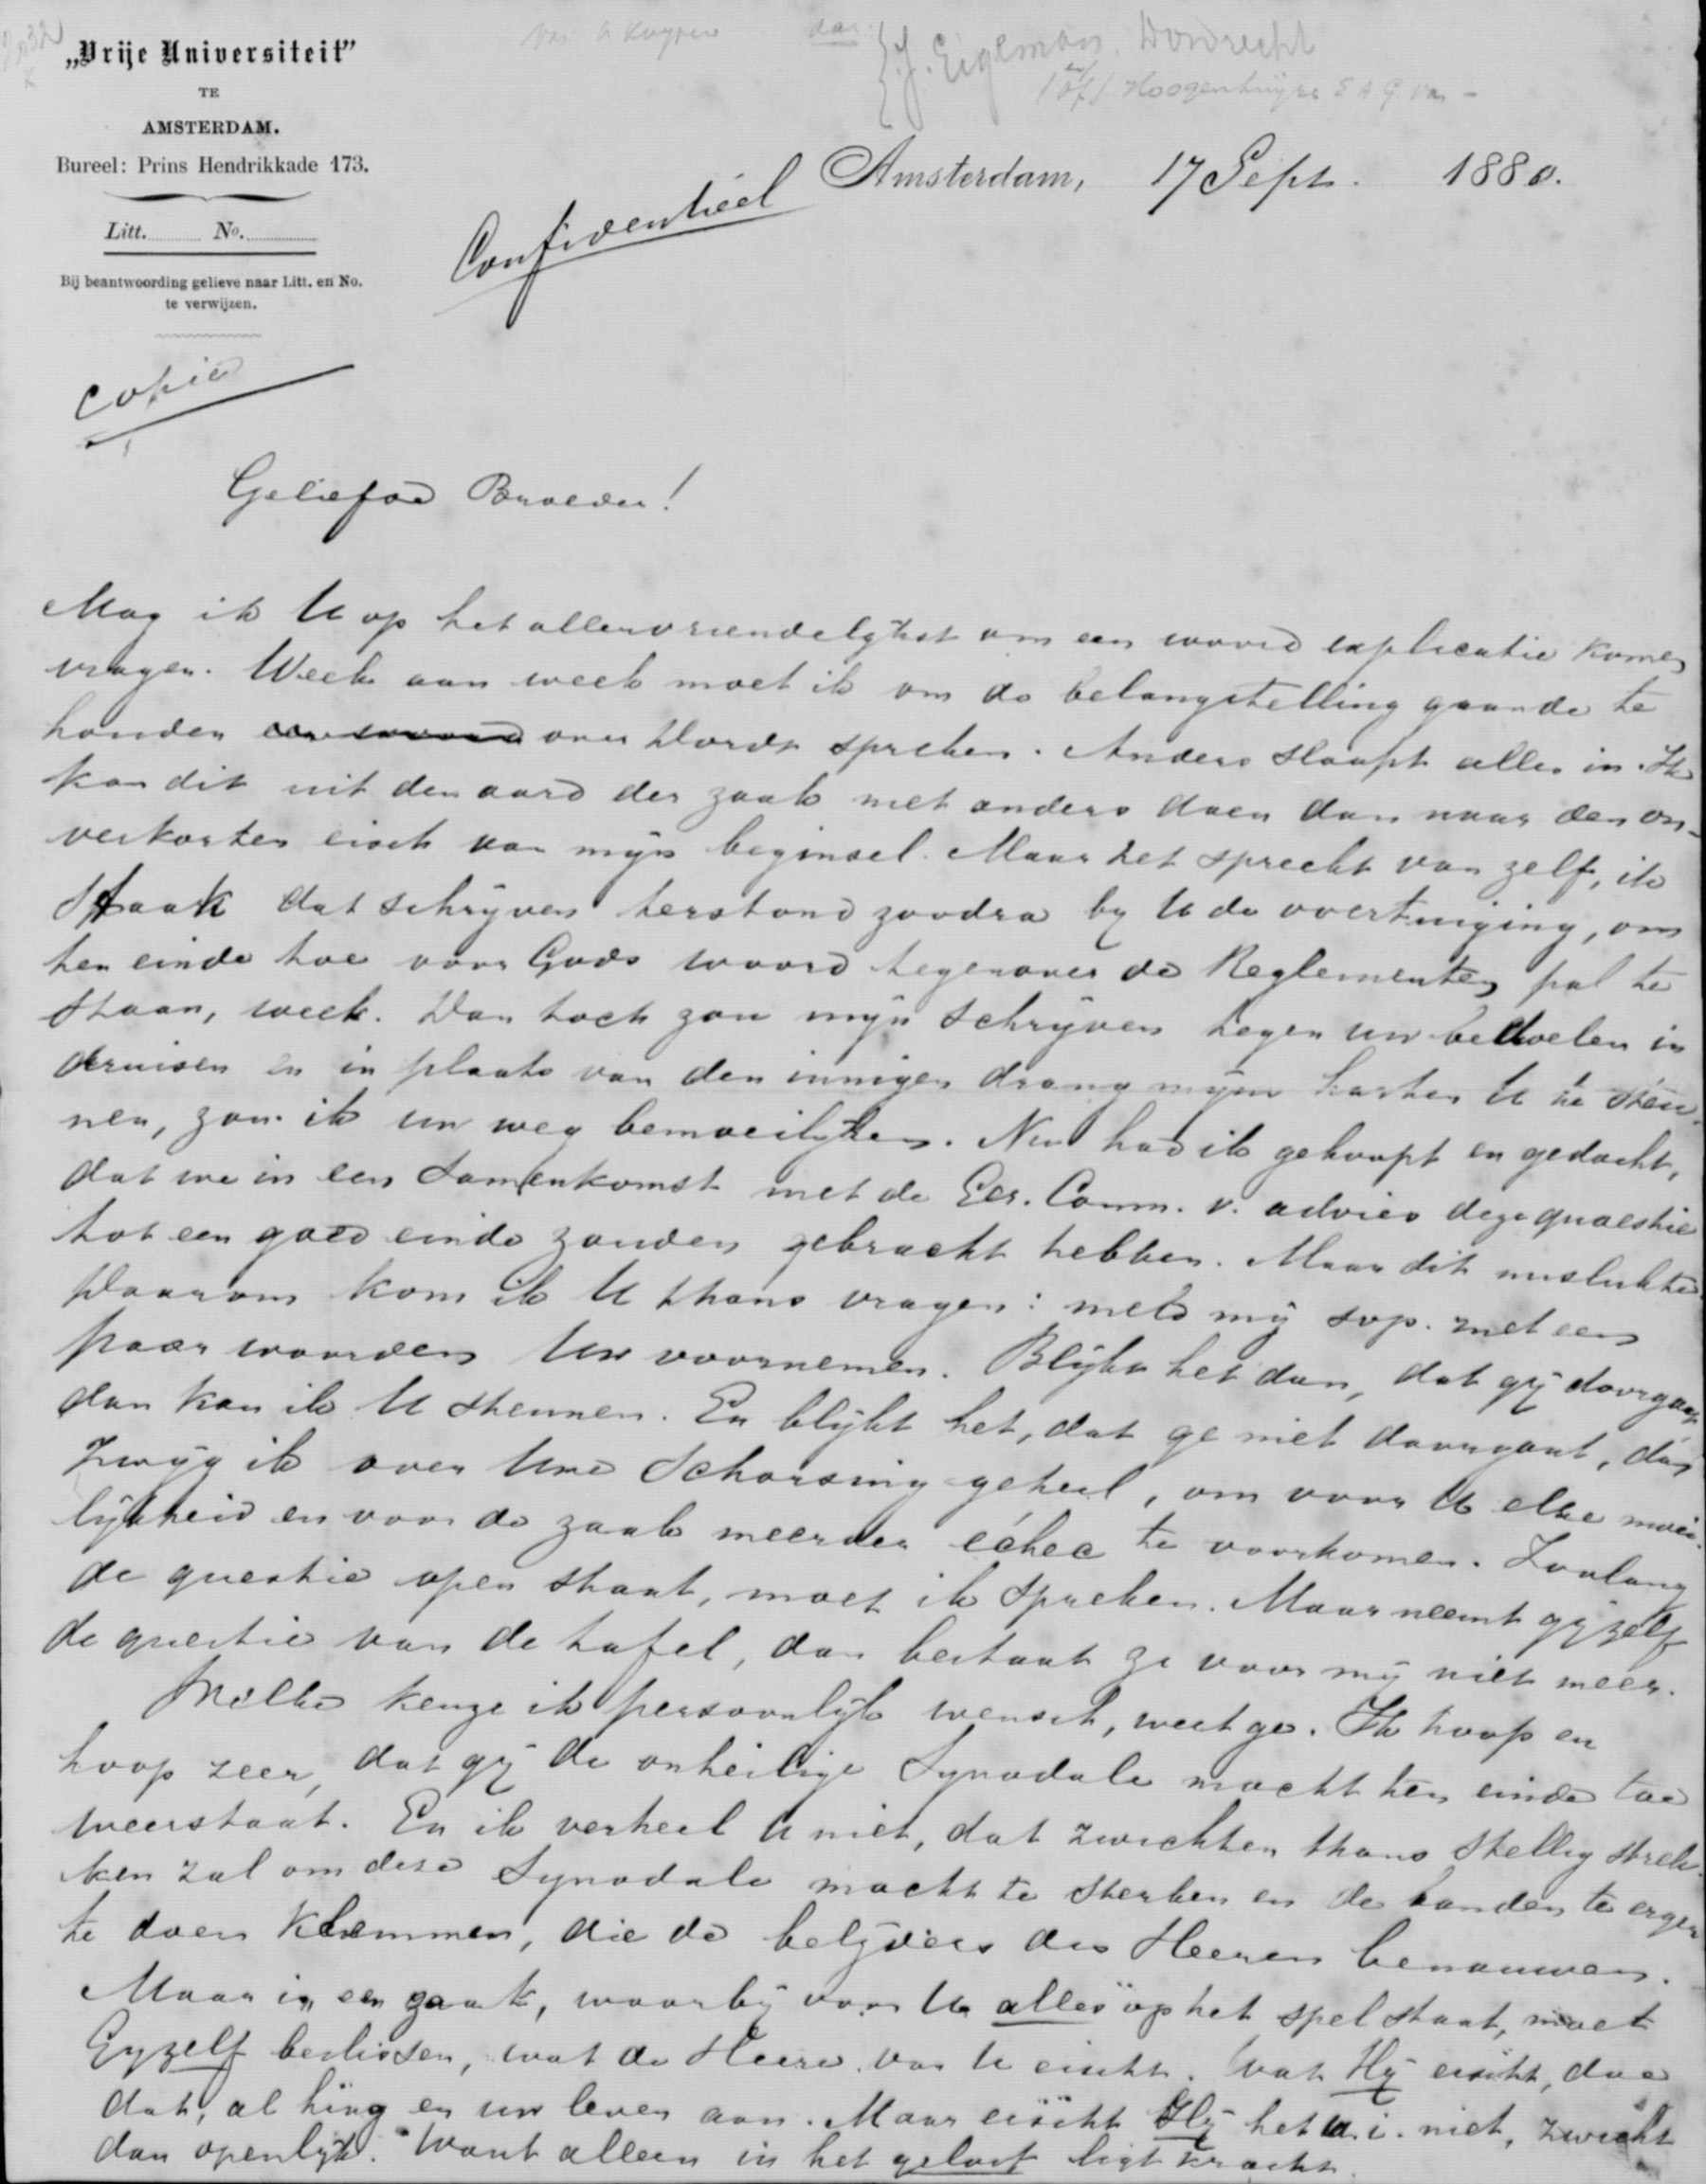 "Vrije Universiteit"
TE
AMSTERDAM.
Bureel: Prins Hendrikkade 173.
Litt. No.
Bij beantwoording gelieve naar Litt. en No.
te verwijzen.
van A Kuyper aan
J. Eigeman. Dordrecht
(of) Hoogenhuyze E A G van -
Amsterdam, 17 Sept. 1880.
Confidentieel
Copie
Geliefde Broeder!
Mag ik U op het allervriendelykst om een woord explicatie komen
vragen. Week aan week moet ik om de belangstelling gaande te
houden over Dordt spreken. Anders slaapt alles in. Ik
kan dit uit den aard der zaak niet anders doen dan naar den on-
verkorten eisch van mijn beginsel. Maar het spreekt van zelf, ik
staak dat schrijven terstond zoodra by U de overtuiging, om
ten einde toe voor Gods woord tegenover de Reglementen pal te
staan, week. Dan toch zou mijn schrijven tegen uw bedoelen in
druisen en in plaats van den innigen drang mijns harten U te steu-
nen, zou ik uw weg bemoeilijken. Nu had ik gehoopt en gedacht,
dat we in een samenkomst met de Eer. Comm. v. advies deze quaestie
tot een goed einde zouden gebracht hebben. Maar dit mislukte.
Daarom kom ik U thans vragen: meld mij svp. met een
paar woorden Uw voornemen. Blijkt het dan, dat gij doorgaat,
dan kan ik U steunen. En blijkt het, dat ge niet doorgaat, dan
zwijg ik over Uwe Schorsing geheel, om voor U elke moei-
lijkheid en voor de zaak meerder échec te voorkomen. Zoolang
de questie open staat, moet ik spreken. Maar neemt gijzelf
de questie van de tafel, dan bestaat ze voor mij niet meer.
Welke keuze ik persoonlijk wensch, weet ge. Ik hoop en
hoop zeer, dat gij de onheilige Synodale macht ten einde toe
weerstaat. En ik verheel U niet, dat zwichten thans stellig strek-
ken zal om deze Synodale macht te sterken en de banden te erger
te doen klemmen, die de belijders des Heeren benauwen.
Maar in een zaak, waarbij voor U alles op het spel staat, moet
Gyzelf beslissen, wat de Heere van U eischt. Wat Hij eischt, doe
dat, al hing er uw leven aan. Maar eischt Hij het u. i. niet, zwicht
dan openlijk. Want alleen in het geloof ligt kracht.